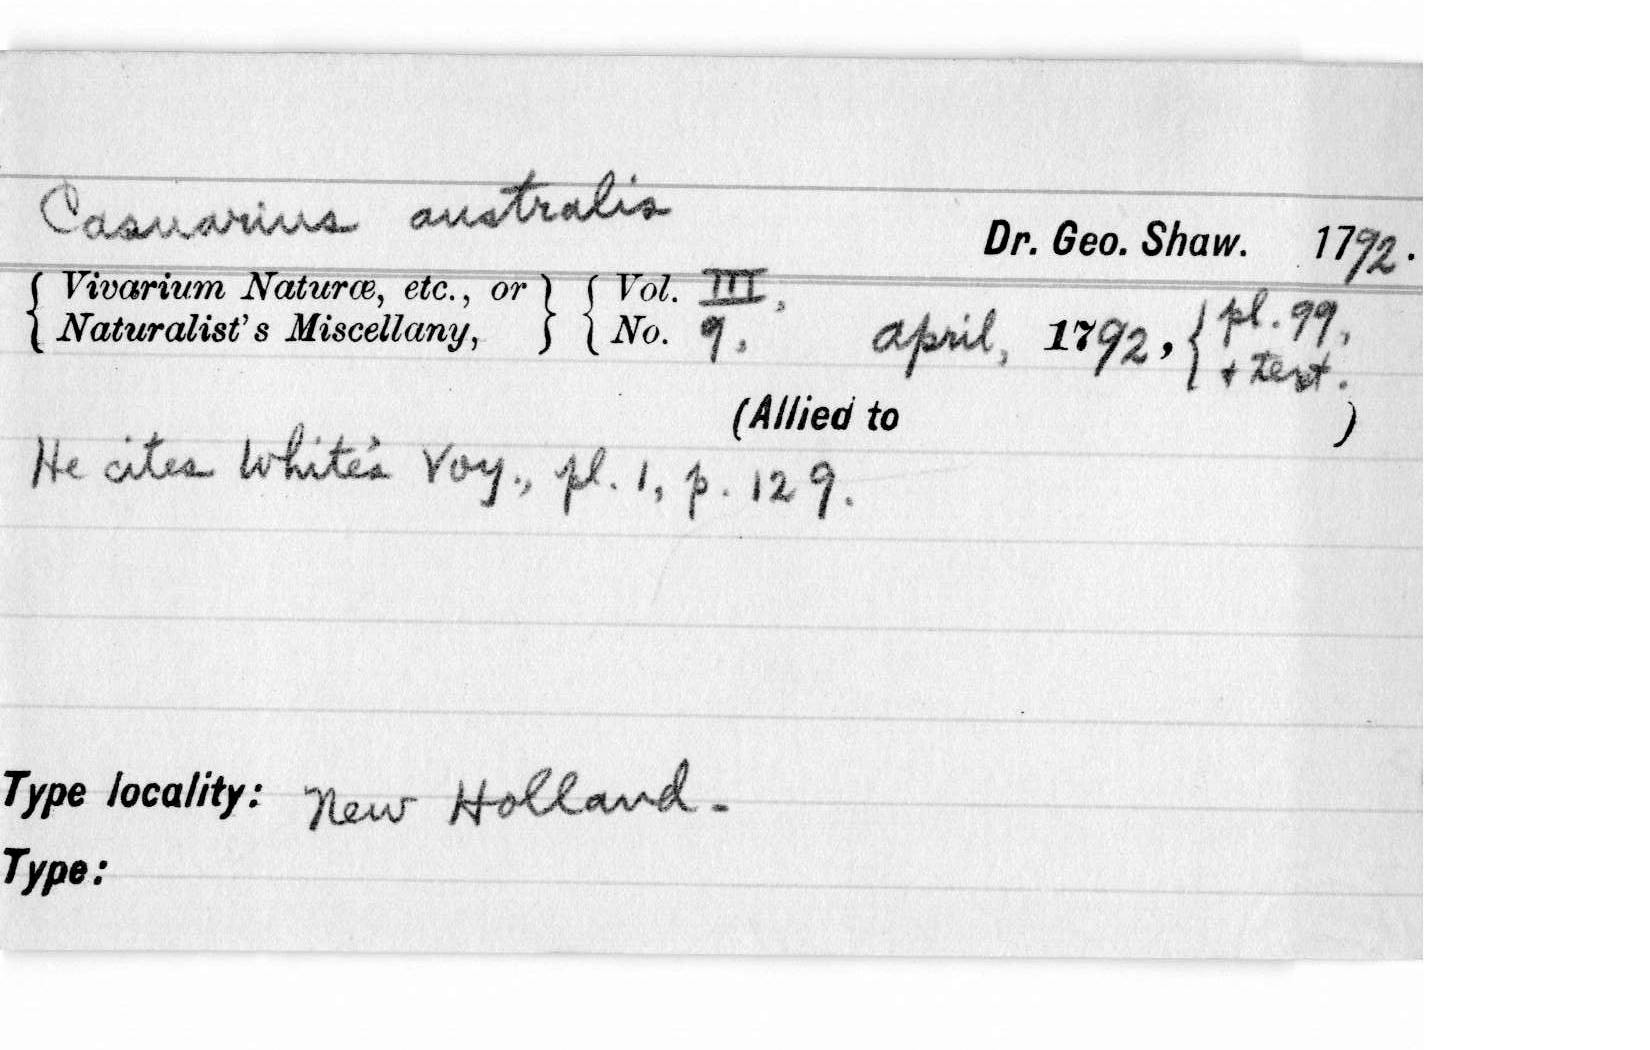 Casuarius australis
Dr. Geo. Shaw. 1792.
{ Vivarium Naturæ, etc., or } { Vol. III,
{ Naturalist's Miscellany, } { No. 9. April, 1792, { pl. 99,
+ text.
(Allied to )
He cites White's Voy., pl. 1, p. 129.
Type locality: New Holland.
Type: